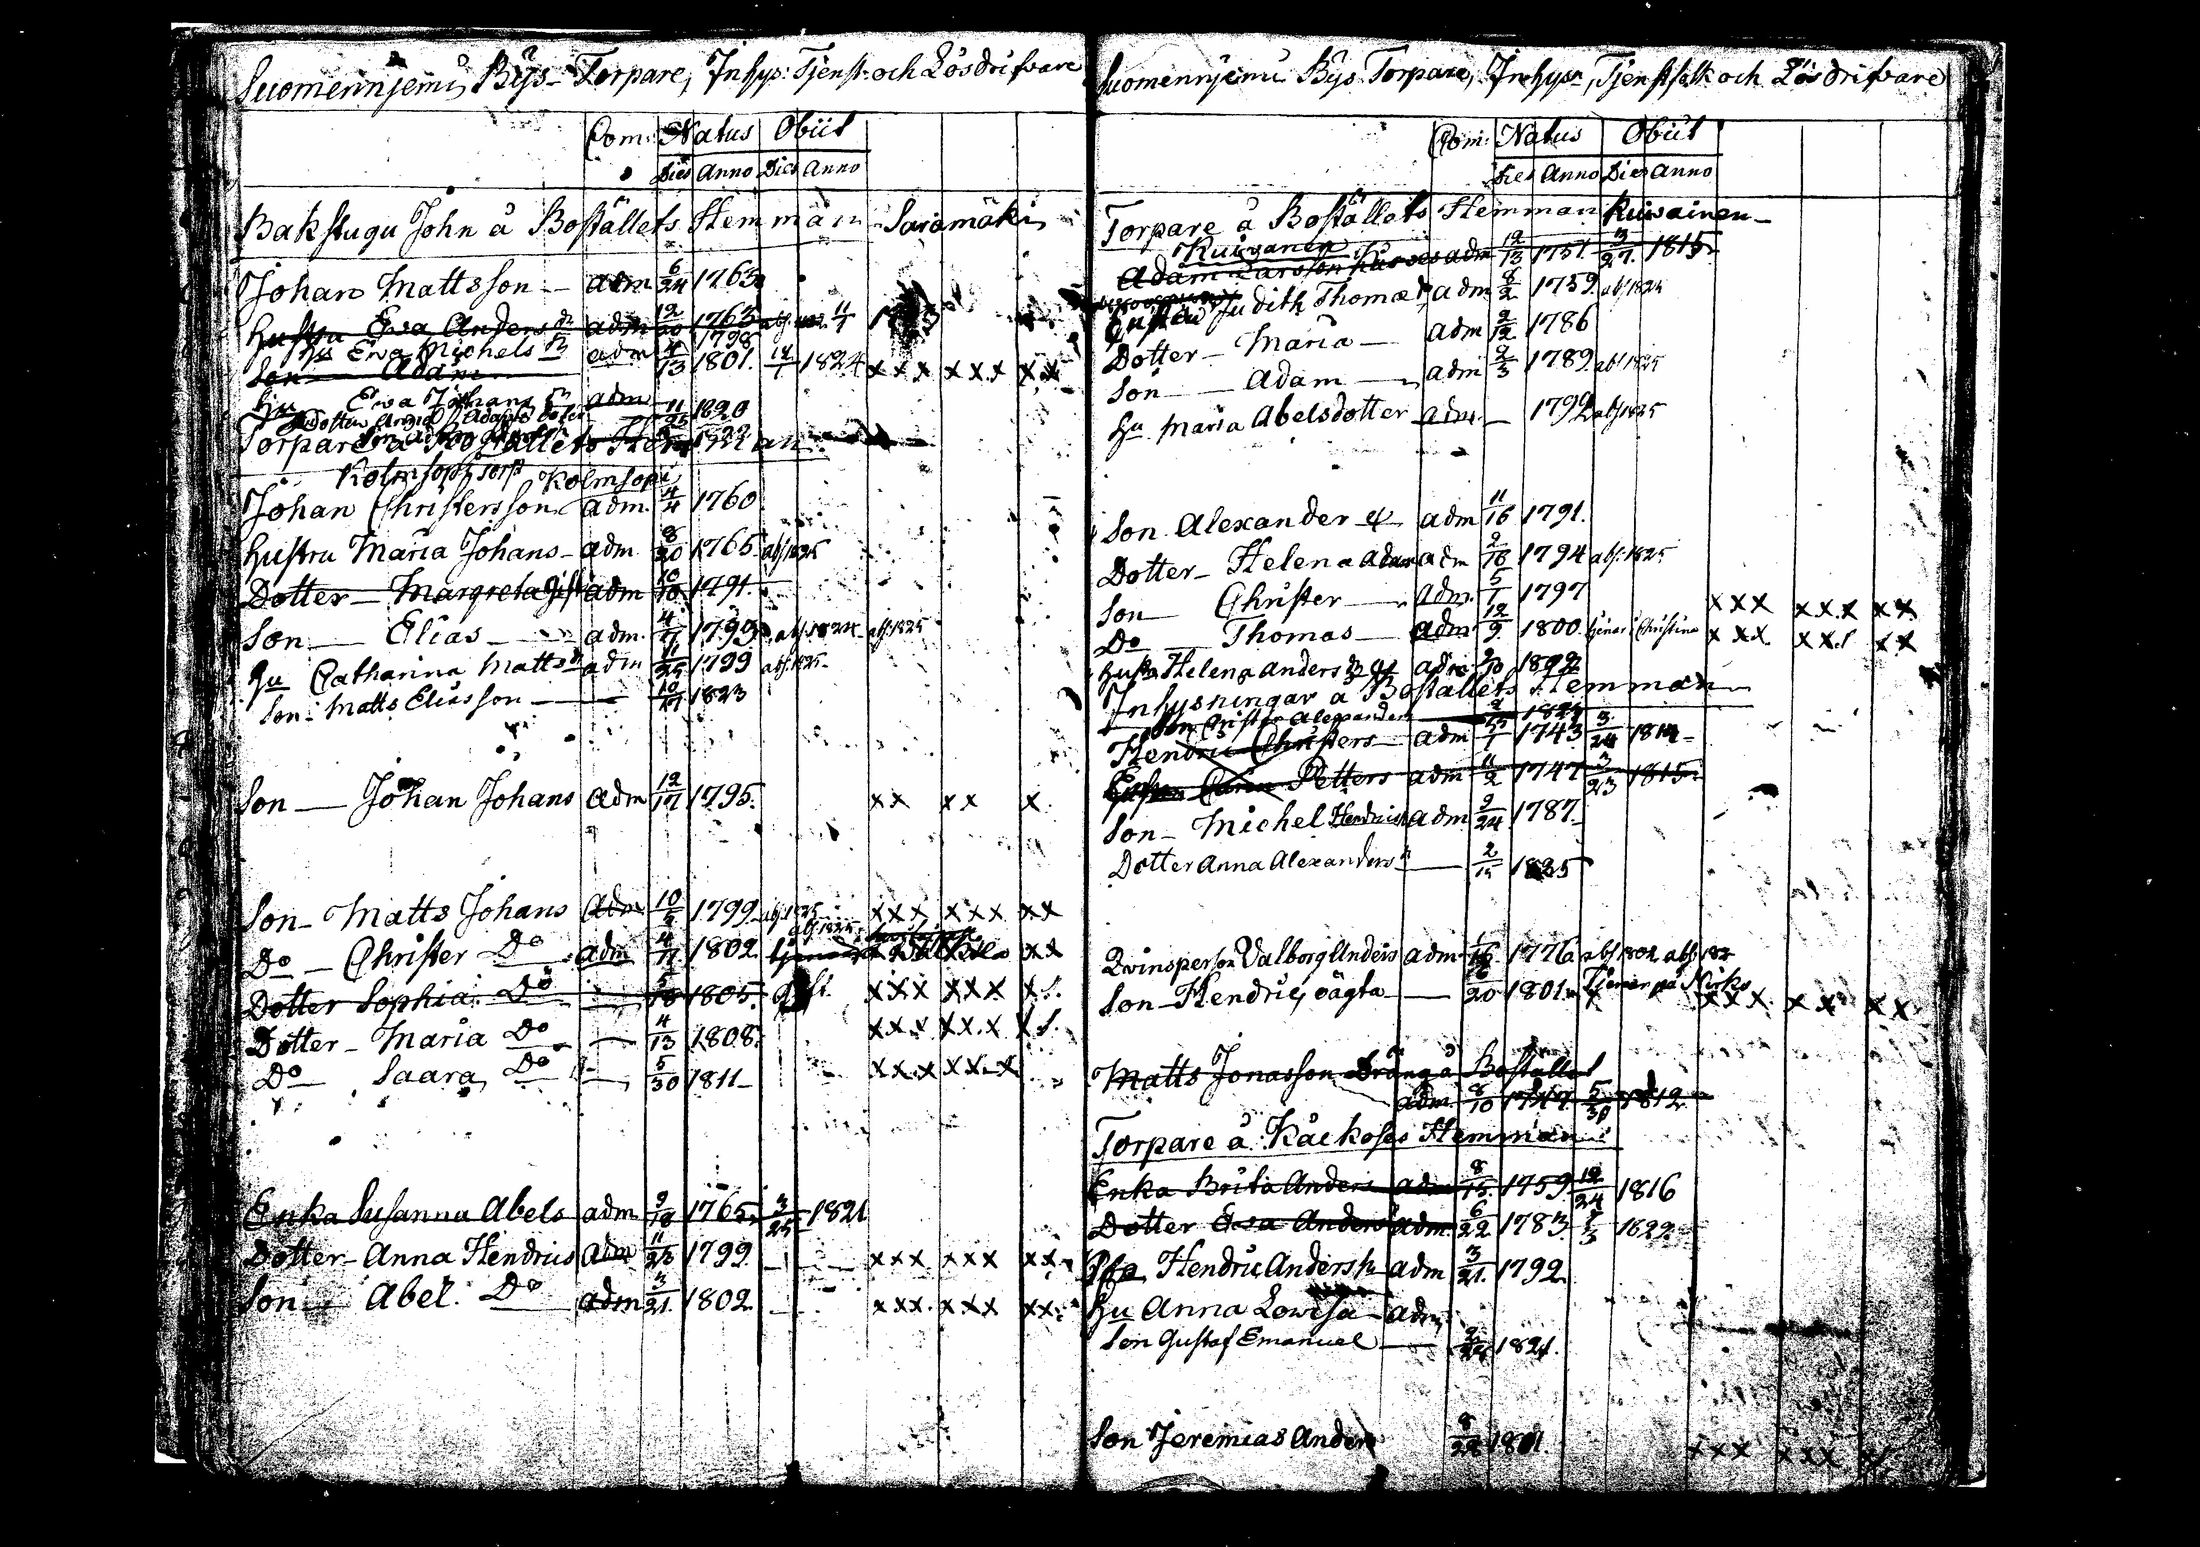 Suomennjemi Bys Torpare, Inhys: Tjenst- och Lösdrifvare
Com: Natus Obiit
Dies Anno Dies Anno
Bakstugu John å Boställets Hemman Saramäki
Johan Mattsson adm 6/24 1763
Hustru Ewa Anders dr adm 12/20 1763 11/1
1798
Hu Ewa Michels dr adm
Son Adam 4/13 1801. 1824 xxx xxx xx
Hu Ewa Johans dr adm
Dotter Anna Adams 11/25 1820
Son 1822
Torpare å Boställets Hemman
Kolmsopi torp Kolmsopi
Johan Christersson adm. 4/4 1760
Hustru Maria Johans adm 8/20 1765 abs. 1825
Dotter Margreta Gift adm 10/10 1791.
Son Elias adm. 4/7 1793 abs. 1824 abs. 1825
Hu Catharina Matts dr adm 11/25 1799 abs. 1825
Son Matts Eliasson 10/17 1823
Son Johan Johans adm 12/17 1795. xx xx x
Son Matts Johans adm 10/5 1799 abs. 1825 xxx xxx xx
abs. 1825
Do Christer Do adm 4/11 1802 xx
Dotter Sophia Do 1805. gift. xxx xxx x
Dotter Maria Do 4/13 1808. xxx xxx x
Do Saara Do 5/30 1811 xxx xxx
Enka Susanna Abels adm 9/18 1765 3/25 1821
Dotter Anna Hendrics adm 11/23 1799 xxx xxx xx
Son Abel Do adm 3/21 1802 xxx xxx xx
Suomennjemi Bys Torpare, Inhysn, Tjenstfolk och Lösdrifvare
Com: Natus Obiit
Dies Anno Dies Anno
Torpare å Boställets Hemman Kuisainen
Kuisanen
Adam Larsson adm 12/13 1751. 3/27. 1815
Hustru Judith Thomæ dr adm 8/2 1759 abs 1824
Dotter Maria adm 2/12 1786
Son Adam adm 2/3 1789 abs 1825
Hu Maria Abelsdotter adm 1792 abs 1825
Son Alexander adm 11/16 1791.
Dotter Helena adm 2/16 1794 abs. 1825
Son Christer adm. 5/1 1797 xxx xxx xx
Do Thomas adm 12/9 1800. xxx xx xx
Hustr Helena Anders dr adm.
Inhysningar å Boställets Hemman
Son Christer Alexanders
Hendric Christers adm 1743 3/24
Hustru Carin Petters adm 11/2 1747 3/23 1815
Son Michel Hendricss adm 9/24 1787.
Dotter Anna Alexanders dr 2/15 1825
Qvinsperson Valborg Anders adm 1776 abs 1802
Son Hendric, oägta 20 1801. Tjenar på xxx xx xx
Matts Jonasson Dräng å Bostället
adm. 8/10 1747 5/30 1812
Torpare å Hemman
Enka Brita Anders adm 8/15 1759 12/24 1816
Dotter Ewa Anders adm. 6/22 1783. 1822
Hendric Anders adm 3/21. 1792
Hu Anna Lowisa adm
Son Gustaf Emanuel 1821.
Son Jeremias Anders 8/28 1801. xxx xxx x